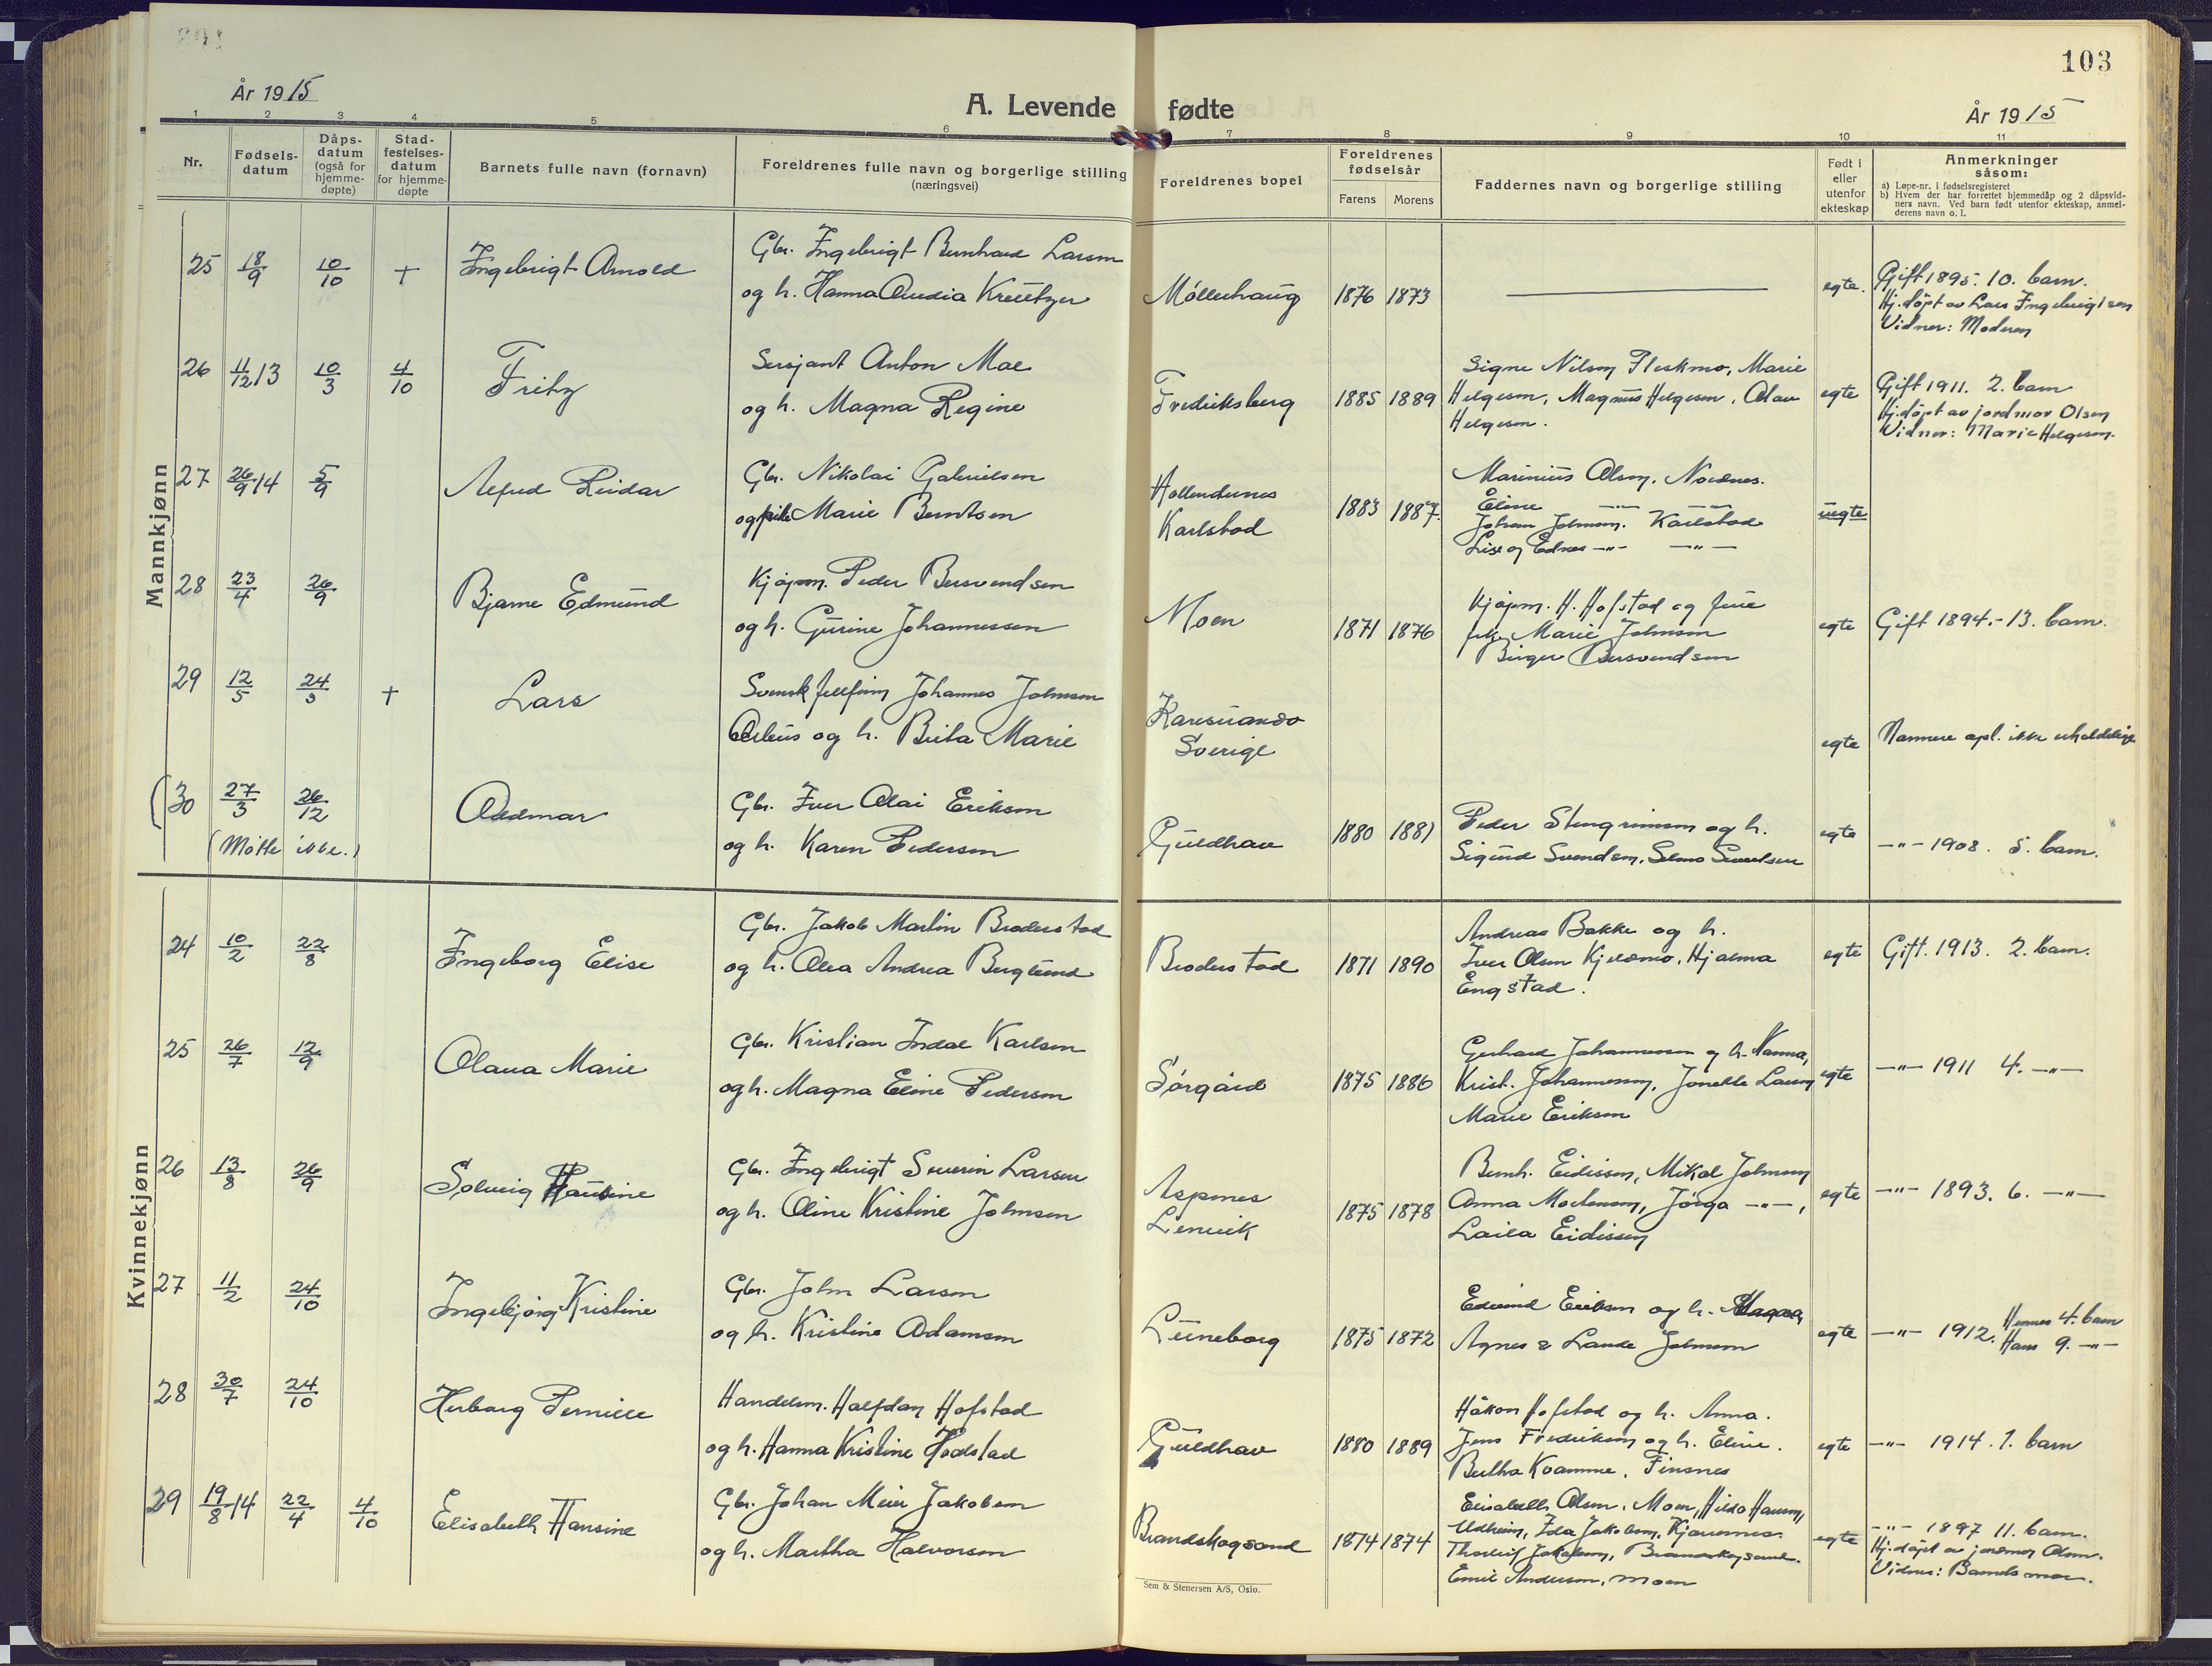 103
År 1915
A. Levende fødte
År 1915
1 2 3 4 5 6 7 8 9 10 11
Nr.
Fødselsdatum
Dåpsdatum (også for hjemmedøpte)
Stadfestelsesdatum for hjemmedøpte
Barnets fulle navn (fornavn)
Foreldrenes fulle navn og borgerlige stilling
(næringsvei)
Foreldrenes bopel
Foreldrenes fødselsår
Farens Morens
Faddernes navn og borgerlige stilling
Født i eller utenfor ekteskap
Anmerkninger såsom:
a) Løpe-nr. i fødselsregisteret
b) Hvem der har forrettet hjemmedåp og 2 dåpsvidners navn. Ved barn født utenfor ekteskap, anmelderens navn o. l.
Mannkjønn
25 18/9 10/10 + Ingebrigt Arnold
Gbr. Ingebrigt Bernhard Larsen
og h. Hanna Kreutzer
Møllerhaug 1876 1873 egte.
Gift 1895. 10. barn.
Hj.døpt av Lars Ingebrigtsen
Vidner: Moderen
26 11/12 13 10/3 4/10 Fritz
Sersjant Anton Moe
og h. Magna Regine
Fredriksberg 1885 1889
Signe Nilsen Fleskmo, Marie
Helgesen, Magnus Helgesen, Olav
Helgesen.
egte
Gift 1911. 2. barn
Hj.døpt av jordmor Olsen
Vidner: Marie Helgesen.
27 26/9 14 5/9 Alfred Reidar
Gbr. Nikolai Gabrielsen
og pike Marie Berntsen
Hollendernes
Karlstad
1883 1887.
Marinius Olsen, Nordnes.
Eline —"— —"—
Johan Johnsen. Karlstad
Lise og Edner —"— —"—
uegte
28 23/4 26/9 Bjarne Edmund
Kjøpm. Peder Bersvendsen
og h. Gurine Johannessen
Moen 1871 1876
Kjøpm. H. Hofstad og frue
frk. Marie Johnsen
Birger Bersvendsen
egte Gift 1894.- 13. barn.
29 12/5 24/5 + Lars
Svensk fjellfinn Johannes Johnsen
og h. Brita Marie
Karesuando
Sverige
egte Nærmere opl. ikke erholdelige
30 27/3 26/12 Oddmar
(Møtte ikke.)
Gbr. Iver Olai Eriksen
og h. Karen Pedersen
Guldhav 1880 1881
Peder Stengrimsen og h.
Sigurd Svendsen, Selma Svendsen
egte —"— 1908. 5. barn.
Kvinnekjønn
24 10/2 22/8 Ingeborg Elise
Gbr. Jakob Martin Broderstad
og h. Olea Andrea Berglund
Broderstad 1871 1890
Andreas Bakke og h.
Iver Olsen Kjeldmo, Hjalma
Engstad.
egte Gift. 1913. 2. barn.
25 26/7 12/9 Olava Marie
Gbr. Kristian Indal Karlsen
og h. Magna Eline Pedersen
Sørgård 1875 1886
Gerhard Johannessen og h. Hanna,
Krist. Johannessen, Jonette Larsen
Marie Eriksen
egte —"— 1911 4. —"—
26 13/8 26/9 Solveig Pauline
Gbr. Ingebrigt Severin Larsen
og h. Oline Kristine Johnsen
Aspenes
Lenvik
1875 1878
Bernh. Eidissen, Mikal Johnsen
Anna Mortensen, Jørga —"—,
Laila Eidissen
egte —"— 1893. 6. —"—
27 11/2 24/10 Ingebjørg Kristine
Gbr. John Larsen
og h. Kristine Adamsen
Luneborg 1875 1872
Edvind Eriksen og h. Magna,
Agnes & Laura Johnsen
egte —"— 1912. Hennes 4. barn
Hans 9. —"—
28 30/7 24/10 Herborg Pernille
Handelsm. Halfdan Hofstad
og h. Hanna Kristine Hofstad
Guldhav 1880 1889
Håkon Hofstad og h. Anna.
Jens Fredriksen og h. Eline.
Bertha Kvamme, Finsnes
egte —"— 1914. 1. barn
29 19/8 14 22/4 4/10 Elisabeth Hansine
Gbr. Johan Meier Jakobsen
og h. Martha Halvorsen
Brandskogsand 1874 1874
Elisabeth Olsen, Moen, Hilda Hansen,
Udheim, Ida Jakobsen, Kjæresnes.
Thorleif Jakobsen, Brandskogsand.
Emil Andersen, Moen
egte —"— 1897 11. barn.
Hj.døpt av jordmor Olsen.
Vidner: Barnets mor.
Sem & Stenersen A/S, Oslo.